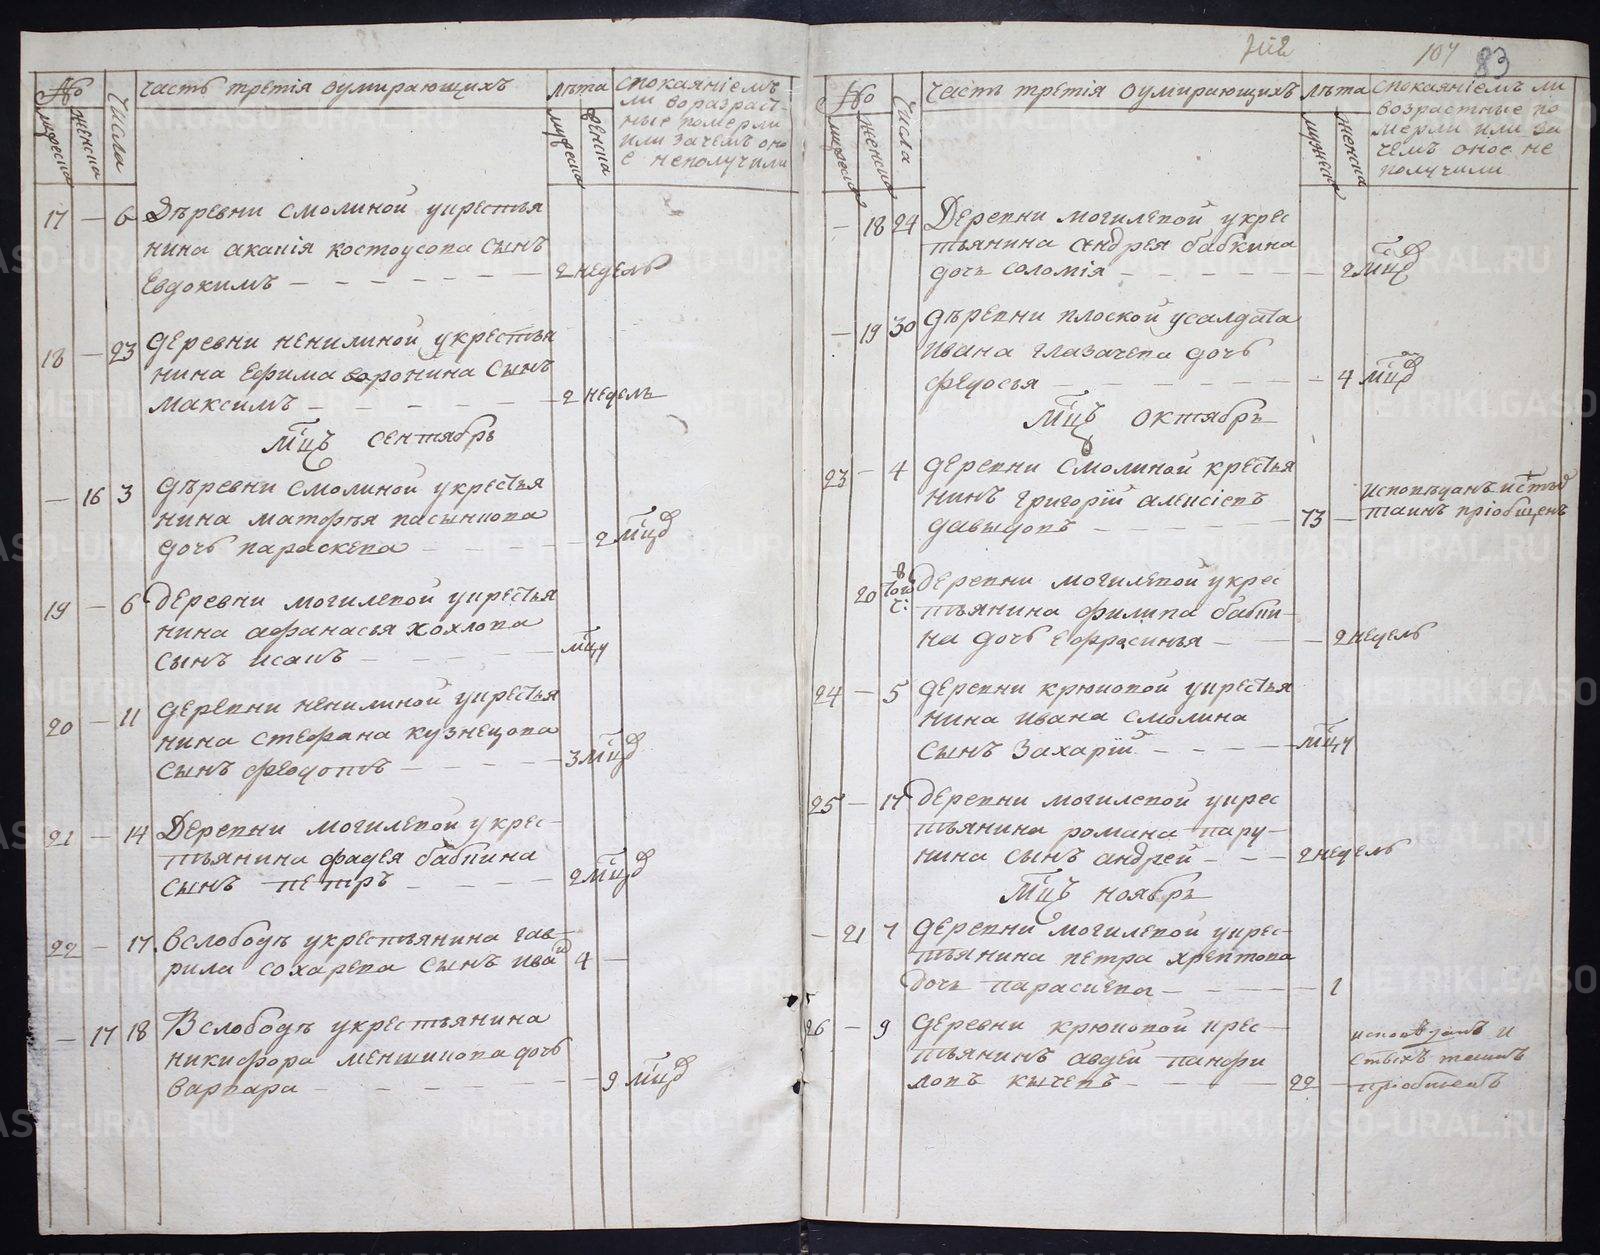 №
мужеска
женска
Числа
Часть третїя оумирающихъ
лѣта
мужеска
женска
спокаянїемъ
ли воразраст-
ные померли
или зачемъ оно
е неполучили
17 — 6 Дѣревни смолиной укрестья
нина акакїя костоусова сынъ
Евдокимъ — — — — — 2 недель
18 — 23 деревни ненилиной укрестья
нина Ефима воронина сынъ
максимъ — — — — — 2 недель
Мцъ сентябрь
— 16 3 дѣревни смолиной укрестья
нина матфѣя пасынкова
дочь параскева — — — — 2 мцд
19 — 6 деревни могилевой укрестья
нина афанасья хохлова
сынъ исакъ — — — — мцу
20 — 11 деревни ненилиной укрестья
нина стефана кузнецова
сынъ феодотъ — — — — 3 мцд
21 — 14 Деревни могилевой укрес-
тьянина фадея бабкина
сынъ петръ — — — — 2 мцд
22 — 17 вслободѣ укрестьянина гав-
рила сохарева сынъ ива 4 —
— 17 18 Вслободѣ укрестьянина
никифора меншикова дочь
варвара — — — — — 9 мцд
107 83
№
мужеска
женска
Числа
Часть третїя оумирающихъ
лѣта
мужеска
женска
спокаянїемъ ли
возрастные по
мерли или за
чемъ оное не
получили
— 18 24 Деревни могилевой укрес
тьянина андрея бабкина
дочь соломїя — — — — — 2 мцд
— 19 30 дѣревни плоской усалдата
ивана глазачева дочь
федосья — — — — — 4 мцд
Мцъ октябрь
23 — 4 деревни смолиной крестья
нинъ григорїй алексїевъ
давыдовъ — — — — 73 —
исповѣданъ истых
таинъ прїобщенъ
20 в того ч: деревни могилевой укрес
тьянина филипа бабки-
на дочь ефросинья — — — 2 недель
24 — 5 деревни крюковой укрестья
нина ивана смолина
сынъ захарїй — — — — мцу
25 — 17 деревни могилевой укрес
тьянина романа пару-
нина сынъ андрей — — — 2 недель
Мцъ ноябрь
— 21 7 деревни могилевой укрес-
тьянина петра хрептова
дочь параскева — — — — — 1
26 — 9 деревни крюковой крес-
тьянинъ авдей панфи
ловъ кычевъ — — — — 22 —
исповѣданъ и
стыхъ таинъ
прїобщенъ
METRIKI.GASO-URAL.RU